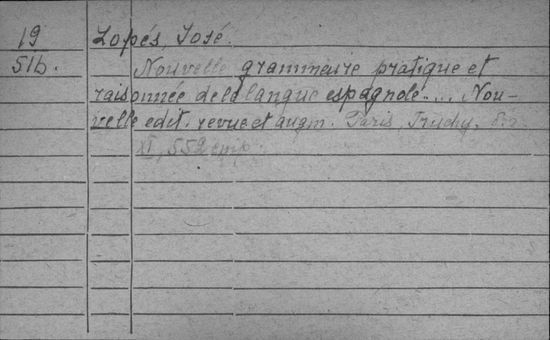 19 Lopés, José.
51b. Nouvelle grammeire pratique et
raisonnée de la langue espagnole.... Nou-
velle edit. revue et augm. Paris, Truchy,
XI, 552 стр.